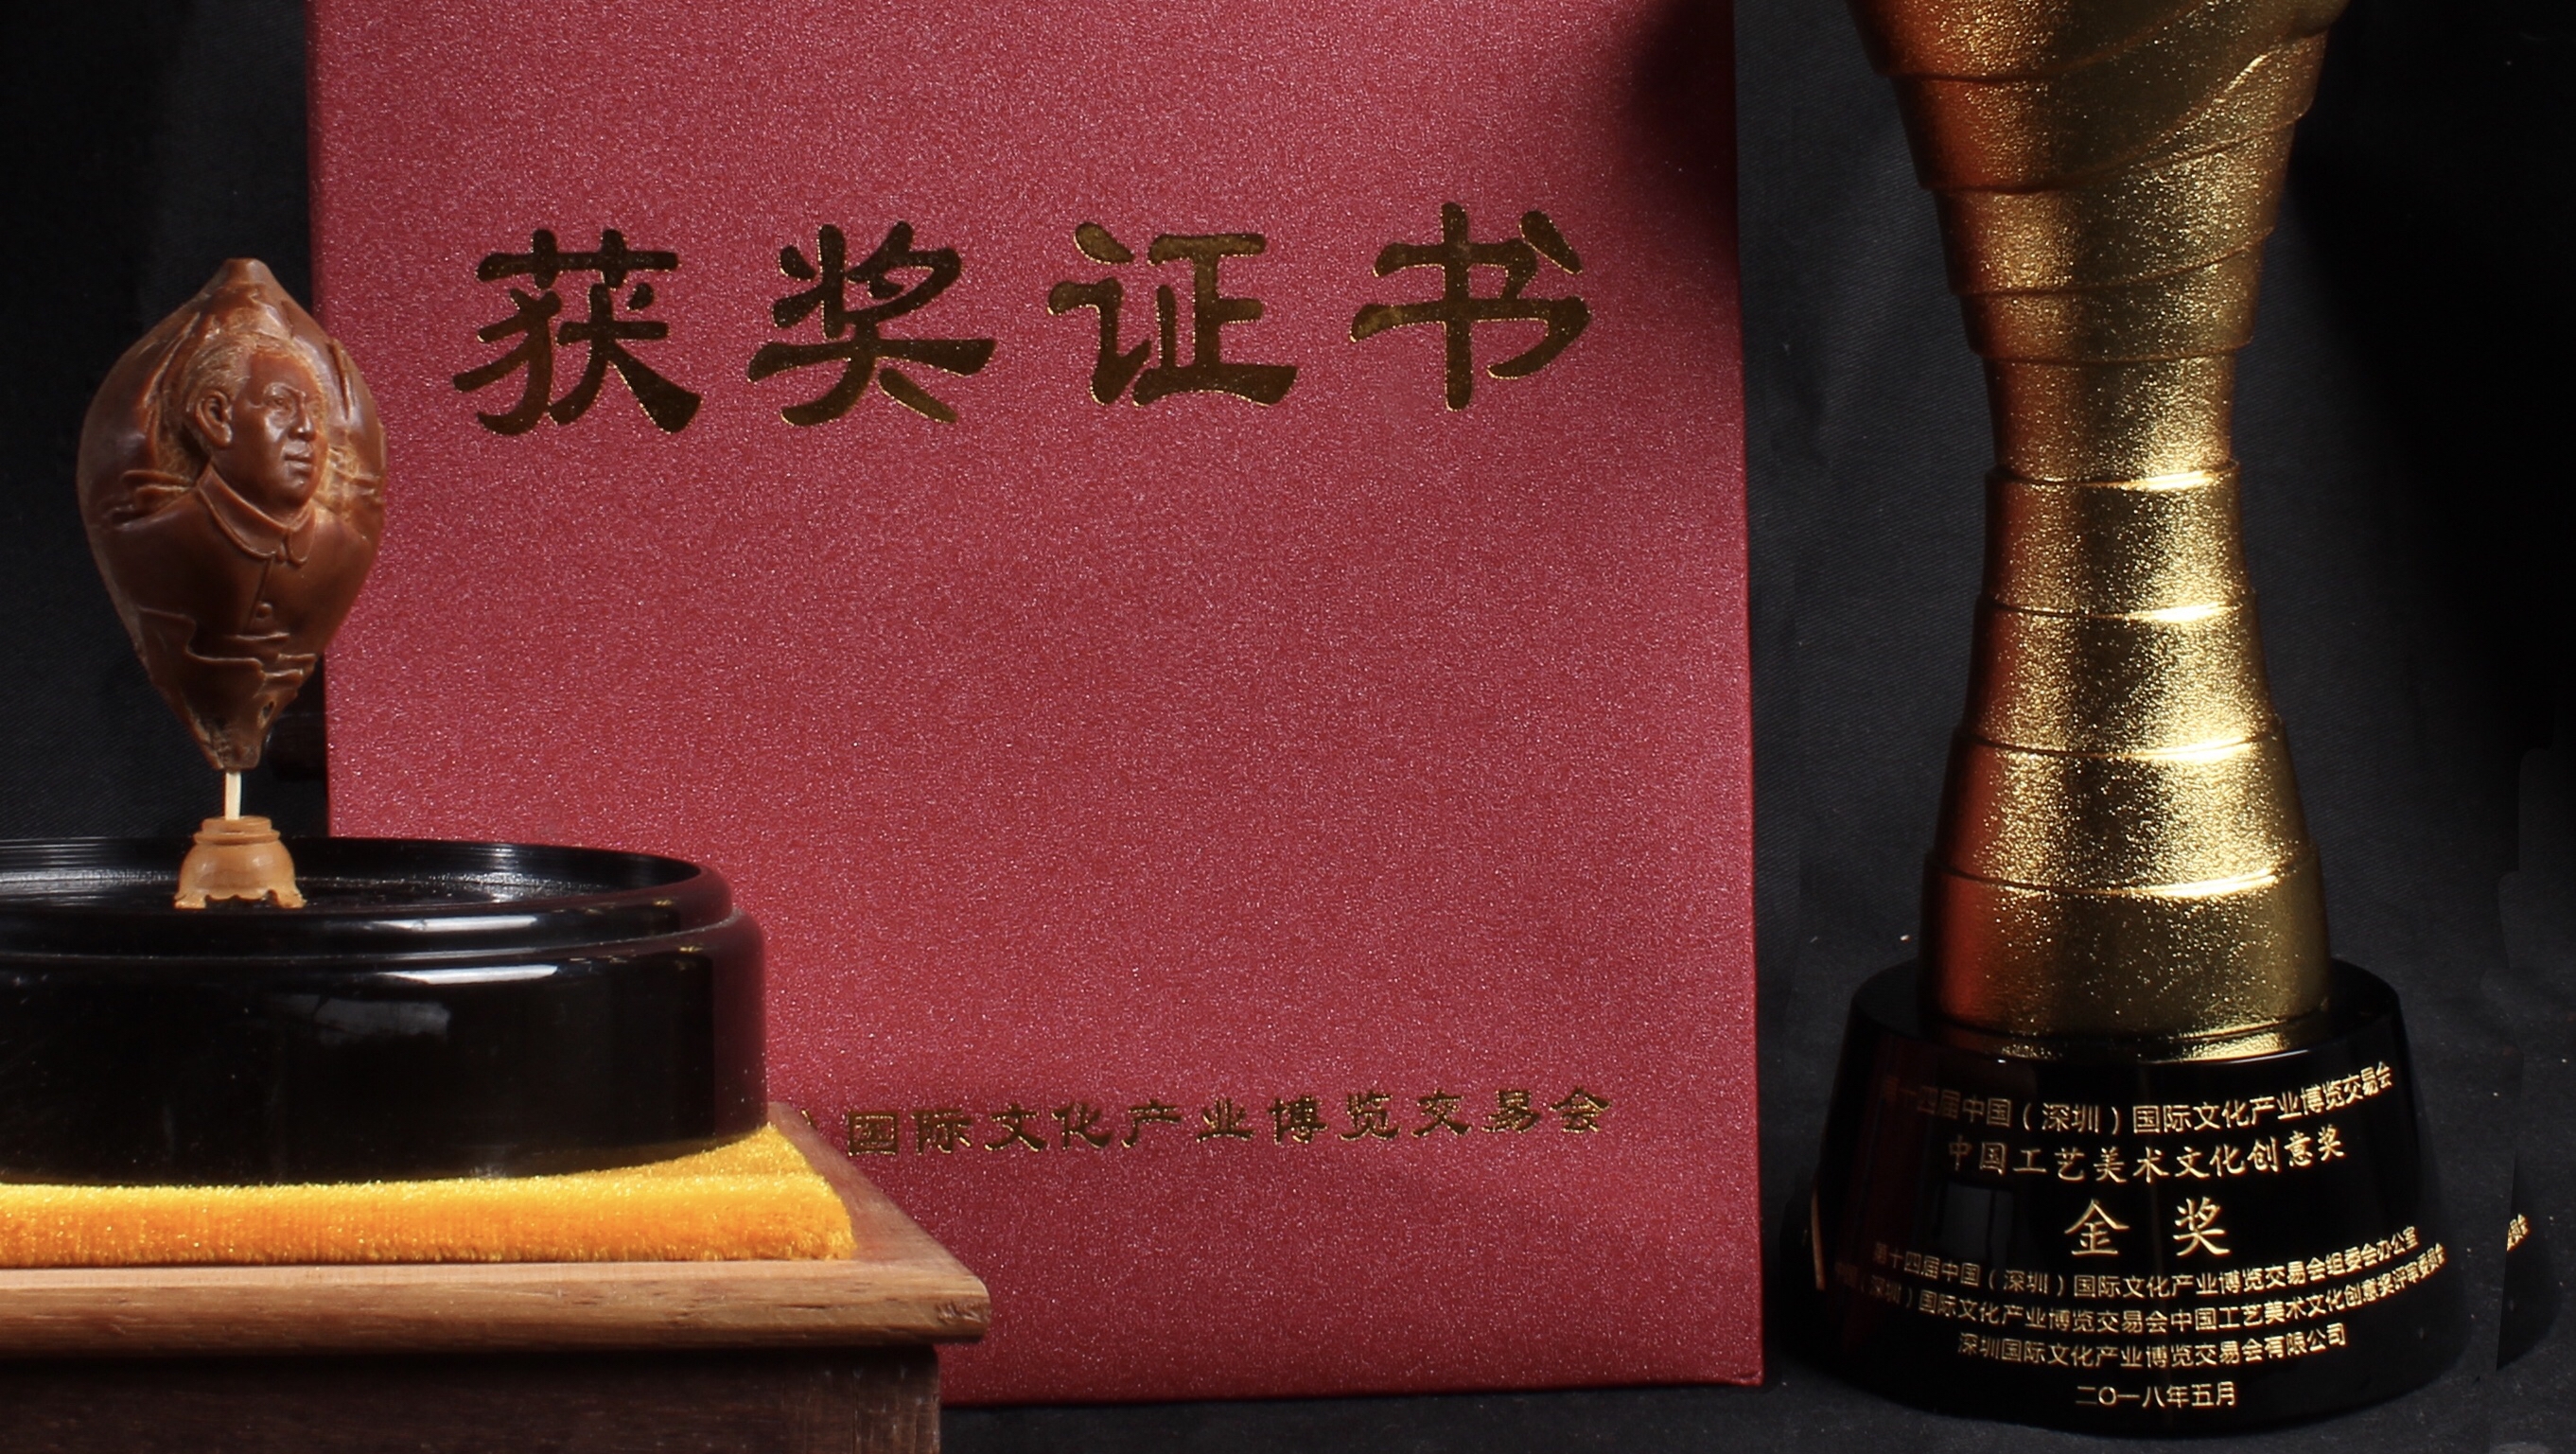 获奖证书
国际文化产业博览交易会
第十四届中国（深圳）国际文化产业博览交易会
中国工艺美术文化创意奖
金奖
第十四届中国（深圳）国际文化产业博览交易会组委会办公室
（深圳）国际文化产业博览交易会中国工艺美术文化创意奖评审委员会
深圳国际文化产业博览交易会有限公司
二〇一八年五月